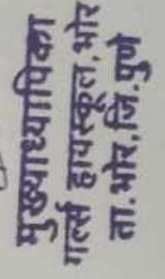 मुख्याध्यापिका
गर्ल्स हायस्कूल, भोर
ता. भोर, जि. पुणे